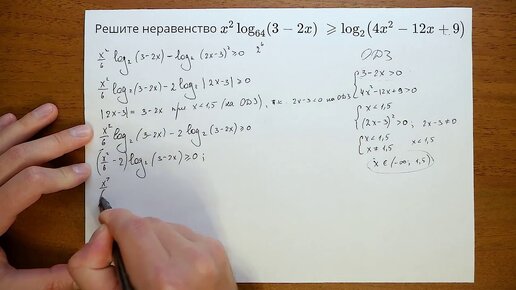 Решите неравенство x² log₆₄(3 − 2x) ⩾ log₂(4x² − 12x + 9)
x²/6 log₂(3-2x) - log₂(2x-3)² ≥ 0   2⁶
x²/6 log₂(3-2x) - 2 log₂|2x-3| ≥ 0
|2x-3| = 3-2x при x<1,5 (на ОДЗ), т.к. 2x-3<0 на ОДЗ
x²/6 log₂(3-2x) - 2 log₂(3-2x) ≥ 0
(x²/6 - 2) log₂(3-2x) ≥ 0;
x²
ОДЗ
{ 3-2x>0
4x²-12x+9>0
{ x<1,5
(2x-3)²>0, 2x-3≠0
{ x<1,5
x≠1,5   x<1,5
x ∈ (-∞; 1,5)